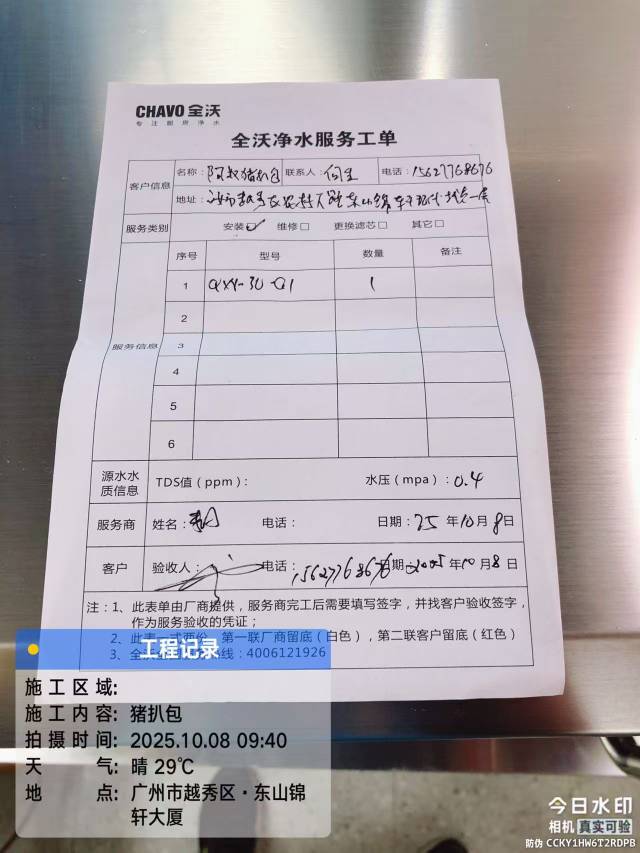 CHAVO 全沃
专注厨房净水
全沃净水服务工单
客户信息
名称：阿叔猪扒包 联系人：何生 电话：15627768676
地址：
服务类别 安装☑ 维修□ 更换滤芯□ 其它□
服务信息
序号 型号 数量 备注
1 QXY-30-01 1
2
3
4
5
6
源水水质信息 TDS值（ppm）： 水压（mpa）：0.4
服务商 姓名： 电话： 日期：25 年 10 月 8 日
客户 验收人： 电话：15627768676 日期：2025 年 10 月 8 日
注：1、此表单由厂商提供，服务商完工后需要填写签字，并找客户验收签字，
作为服务验收的凭证；
2、此表一式两份，第一联厂商留底（白色），第二联客户留底（红色）
3、全沃 线：4006121926
工程记录
施工区域:
施工内容: 猪扒包
拍摄时间: 2025.10.08 09:40
天气: 晴 29℃
地点: 广州市越秀区·东山锦
轩大厦
今日水印
相机 真实可验
防伪 CCKY1HW6T2RDPB